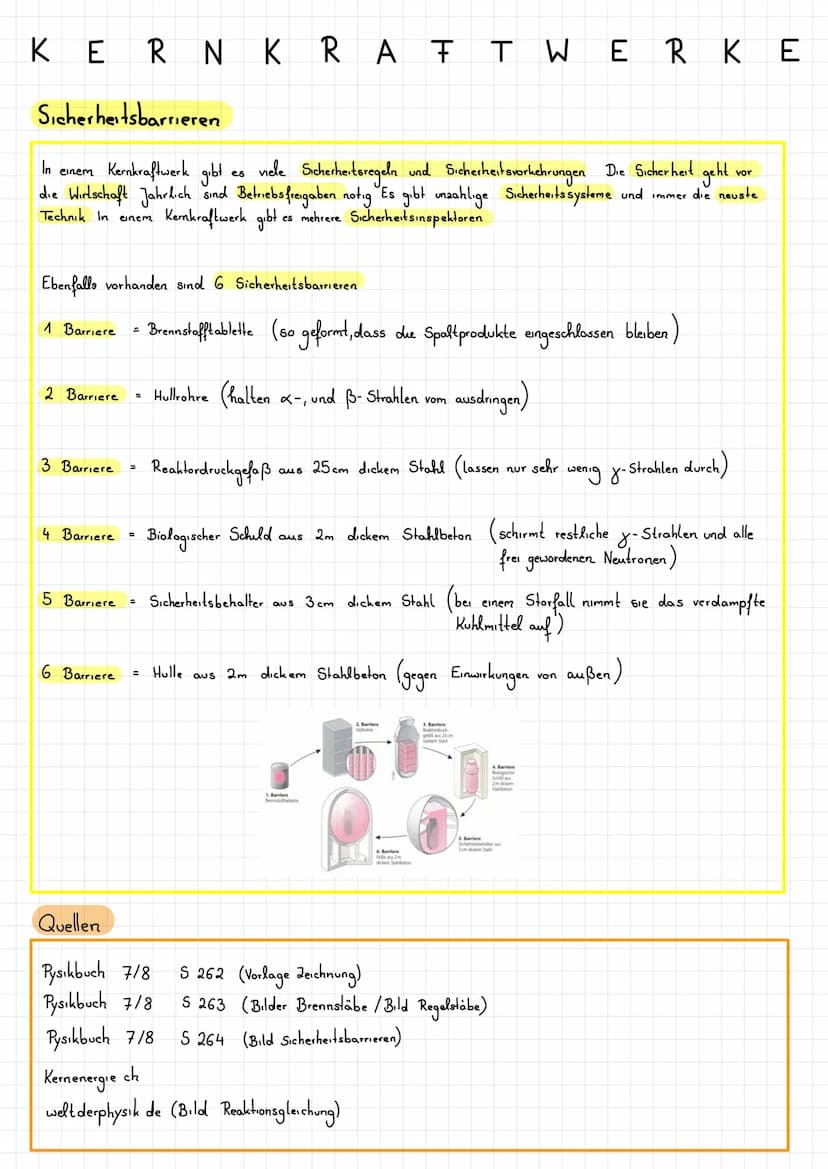 KERNKRAFTWERKE
Sicherheitsbarrieren
In einem Kernkraftwerk gibt es viele Sicherheitsregeln und Sicherheitsvorkehrungen Die Sicherheit geht vor
die Wirtschaft Jahrlich sind Betriebsfreigaben notig Es gibt unzahlige Sicherheitssysteme und immer die neuste
Technik In einem Kernkraftwerk gibt es mehrere Sicherheitsinspektoren
Ebenfalls vorhanden sind 6 Sicherheitsbarrieren
1 Barriere = Brennstofftablette (so geformt, dass die Spaltprodukte eingeschlossen bleiben)
2 Barriere = Hullrohre (halten α-, und β-Strahlen vom ausdringen)
3 Barriere = Reaktordruckgefaß aus 25cm dickem Stahl (lassen nur sehr wenig γ-Strahlen durch)
4 Barriere = Biologischer Schild aus 2m dickem Stahlbeton (schirmt restliche γ-Strahlen und alle
frei gewordenen Neutronen)
5 Barriere = Sicherheitsbehalter aus 3cm dickem Stahl (bei einem Storfall nimmt sie das verdampfte
Kuhlmittel auf)
6 Barriere = Hulle aus 2m dickem Stahlbeton (gegen Einwirkungen von außen)
2. Barriere
Hüllrohre
3. Barriere
Reaktordruck-
gefäß aus 25 cm
starkem Stahl
4. Barriere
Biologischer
Schild aus
2 m dickem
Stahlbeton
1. Barriere
Brennstofftablette
5. Barriere
Sicherheitsbehälter aus
3 cm dickem Stahl
6. Barriere
Hülle aus 2 m
dickem Stahlbeton
Quellen
Pysikbuch 7/8 S 262 (Vorlage Zeichnung)
Pysikbuch 7/8 S 263 (Bilder Brennstäbe / Bild Regelstäbe)
Pysikbuch 7/8 S 264 (Bild Sicherheitsbarrieren)
Kernenergie ch
weltderphysik de (Bild Reaktionsgleichung)